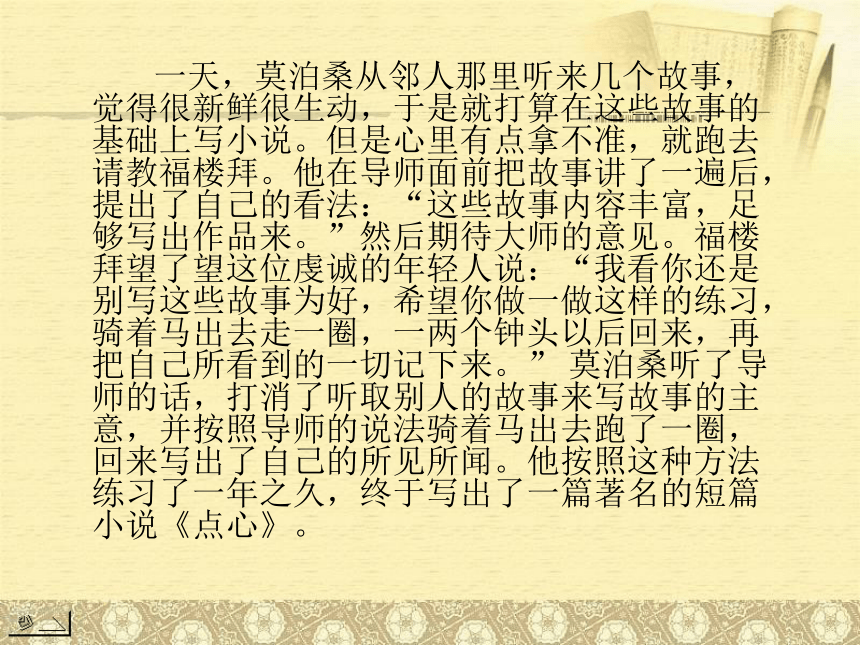 一天，莫泊桑从邻人那里听来几个故事，
觉得很新鲜很生动，于是就打算在这些故事的
基础上写小说。但是心里有点拿不准，就跑去
请教福楼拜。他在导师面前把故事讲了一遍后，
提出了自己的看法：“这些故事内容丰富，足
够写出作品来。”然后期待大师的意见。福楼
拜望了望这位虔诚的年轻人说：“我看你还是
别写这些故事为好，希望你做一做这样的练习，
骑着马出去走一圈，一两个钟头以后回来，再
把自己所看到的一切记下来。” 莫泊桑听了导
师的话，打消了听取别人的故事来写故事的主
意，并按照导师的说法骑着马出去跑了一圈，
回来写出了自己的所见所闻。他按照这种方法
练习了一年之久，终于写出了一篇著名的短篇
小说《点心》。